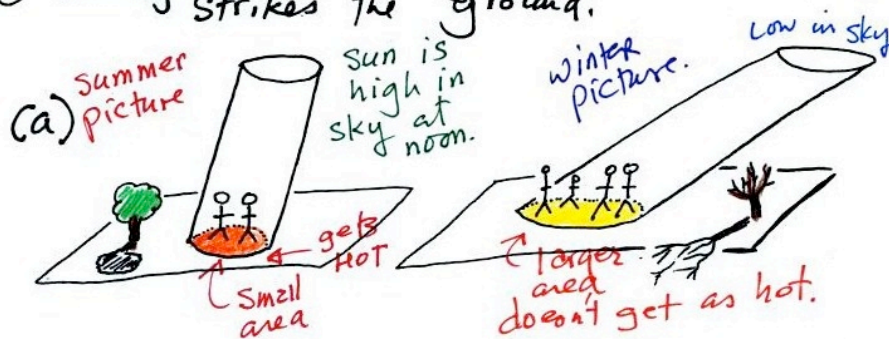 strikes the ground.
(a) summer picture
sun is
high in
sky at
noon.
gets
HOT
small
area
winter
picture.
Low in sky
larger
area
doesn't get as hot.